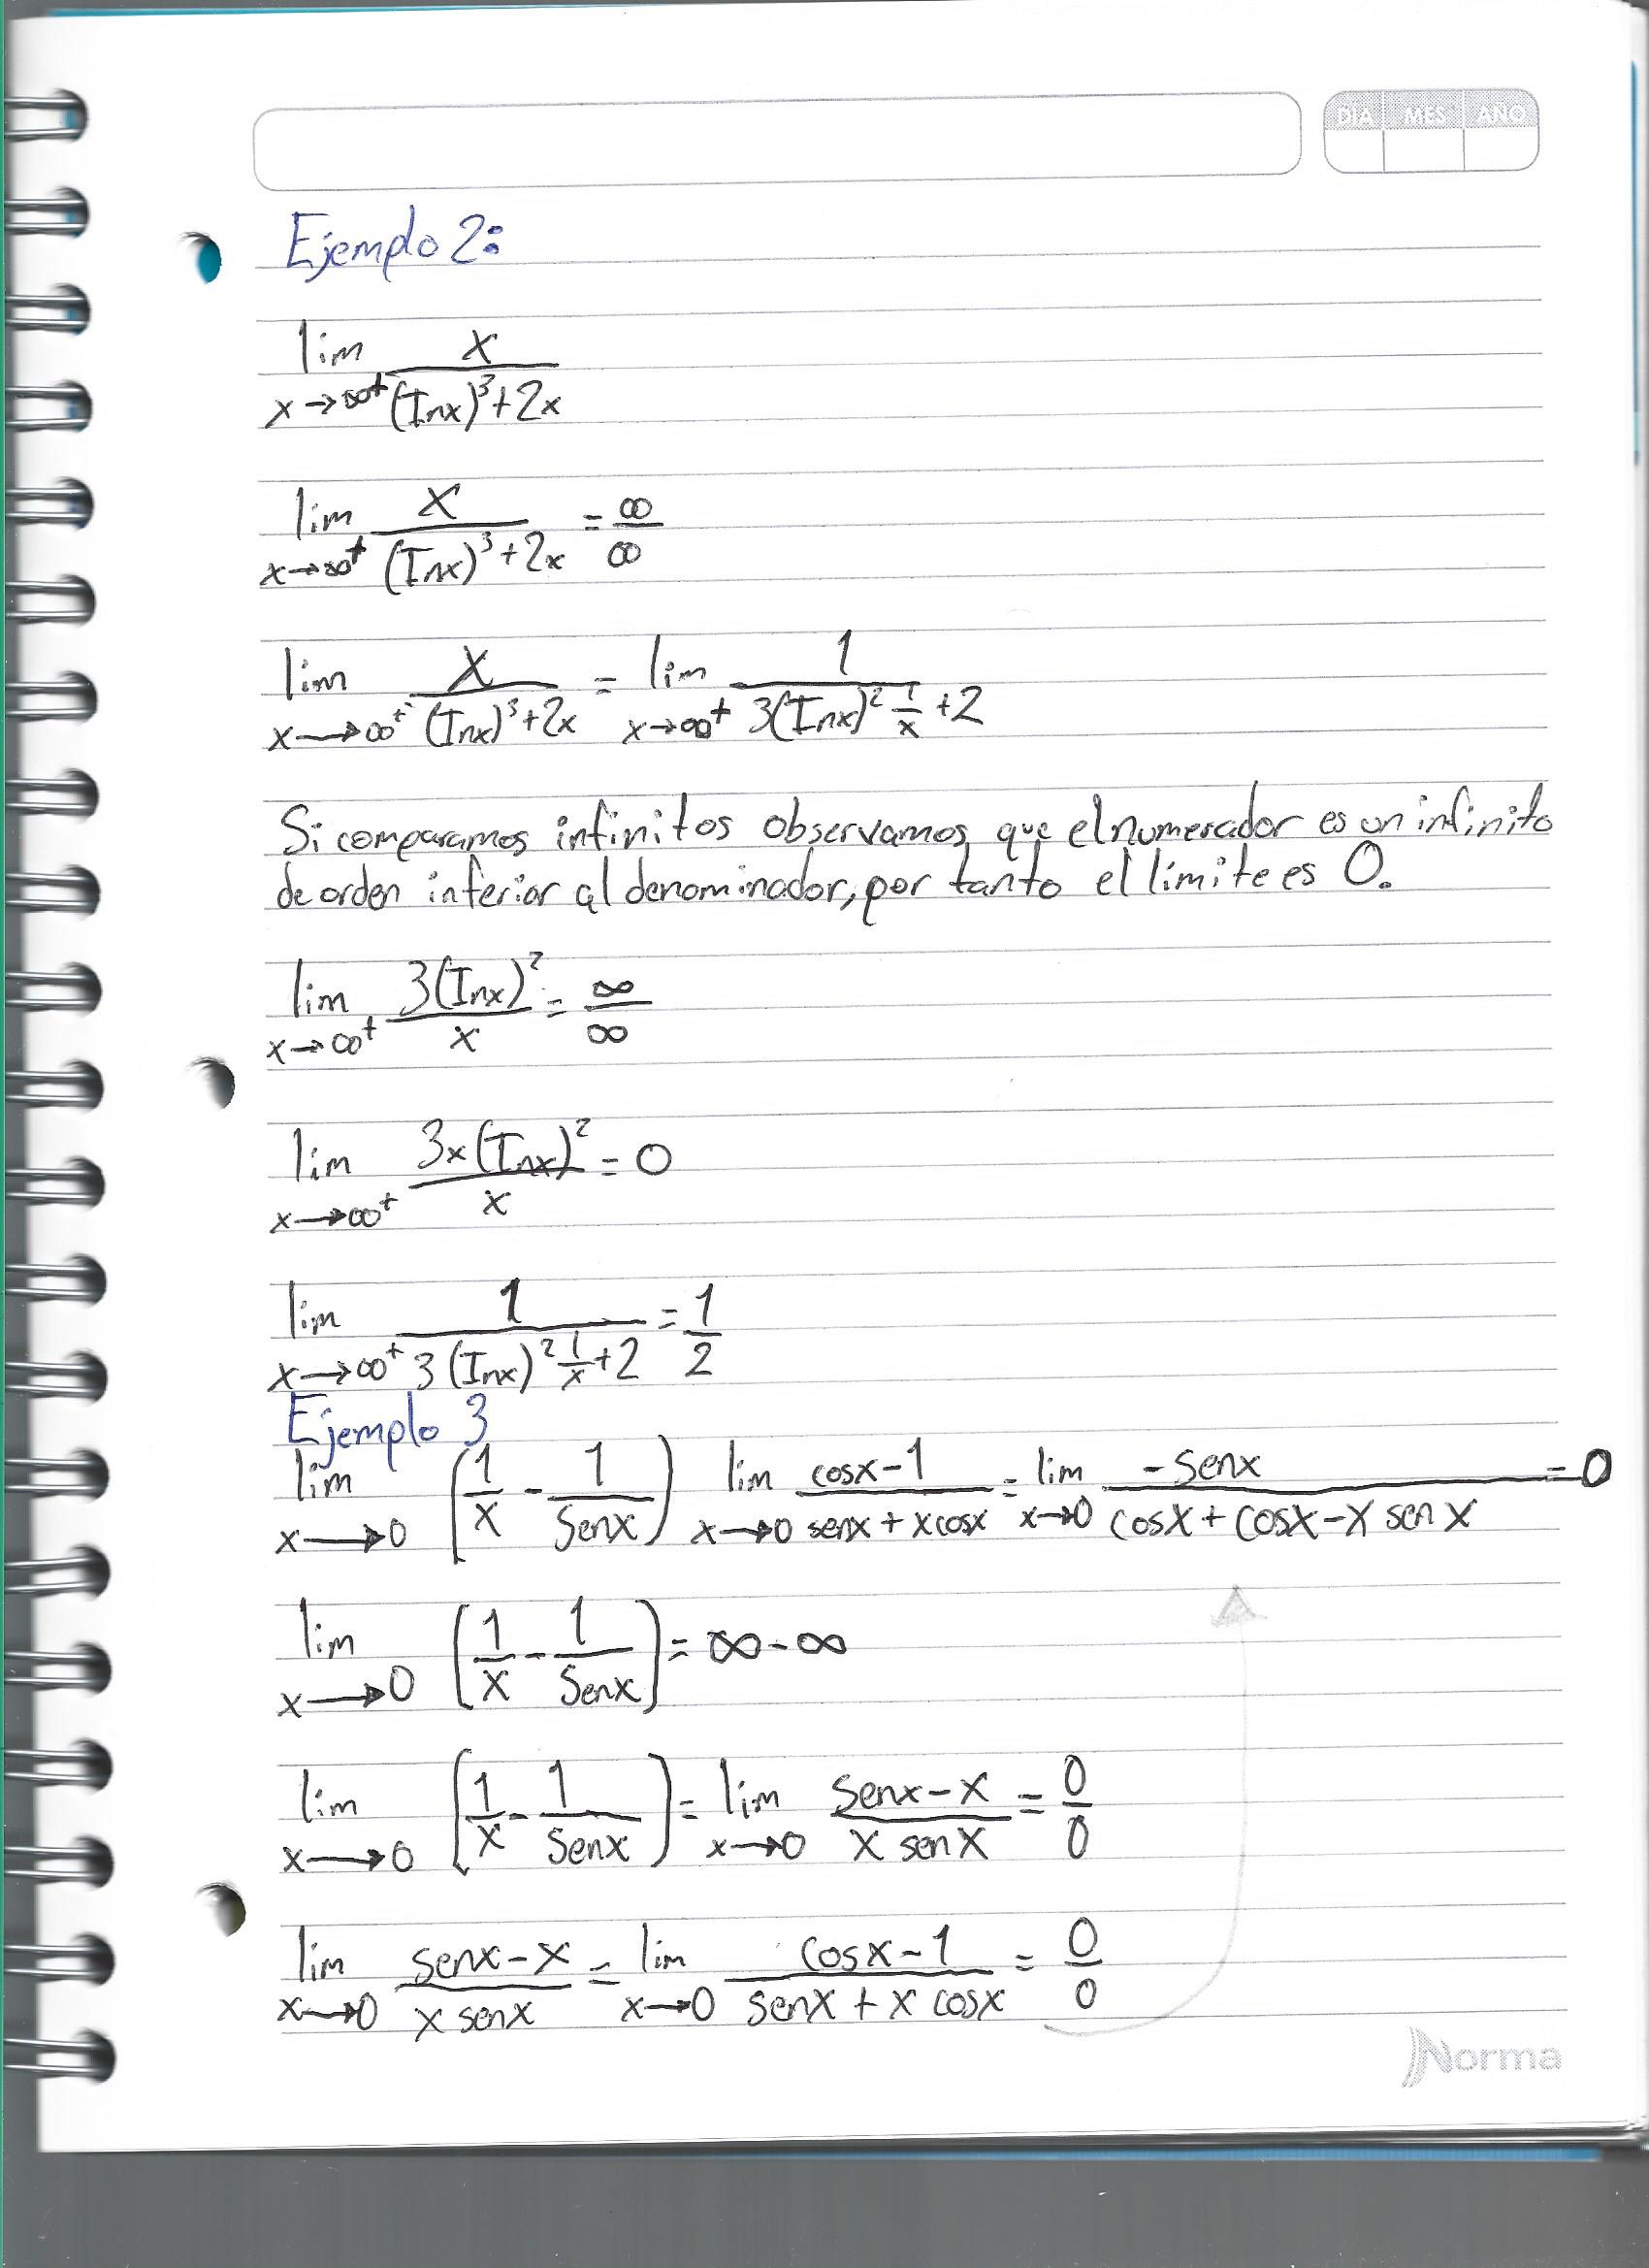 DIA MES AÑO
Ejemplo 2:
lim x→∞⁺ x/((Inx)³+2x)
lim x→∞⁺ x/((Inx)³+2x) = ∞/∞
lim x→∞⁺ x/((Inx)³+2x) = lim x→∞⁺ 1/(3(Inx)² 1/x +2)
Si comparamos infinitos observamos que el numerador es un infinito
de orden inferior al denominador, por tanto el límite es 0.
lim x→∞⁺ 3(Inx)²/x = ∞/∞
lim x→∞⁺ 3x(Inx)²/x = 0
lim x→∞⁺ 1/(3(Inx)² 1/x +2) = 1/2
Ejemplo 3
lim x→0 (1/x - 1/Senx) lim x→0 (cosx-1)/(senx + xcosx) = lim x→0 -senx/(cosx + cosx - x senx) = 0
lim x→0 (1/x - 1/Senx) = ∞-∞
lim x→0 (1/x - 1/Senx) = lim x→0 (Senx-x)/(x senx) = 0/0
lim x→0 (senx-x)/(x senx) = lim x→0 (cosx-1)/(senx + x cosx) = 0/0
Norma